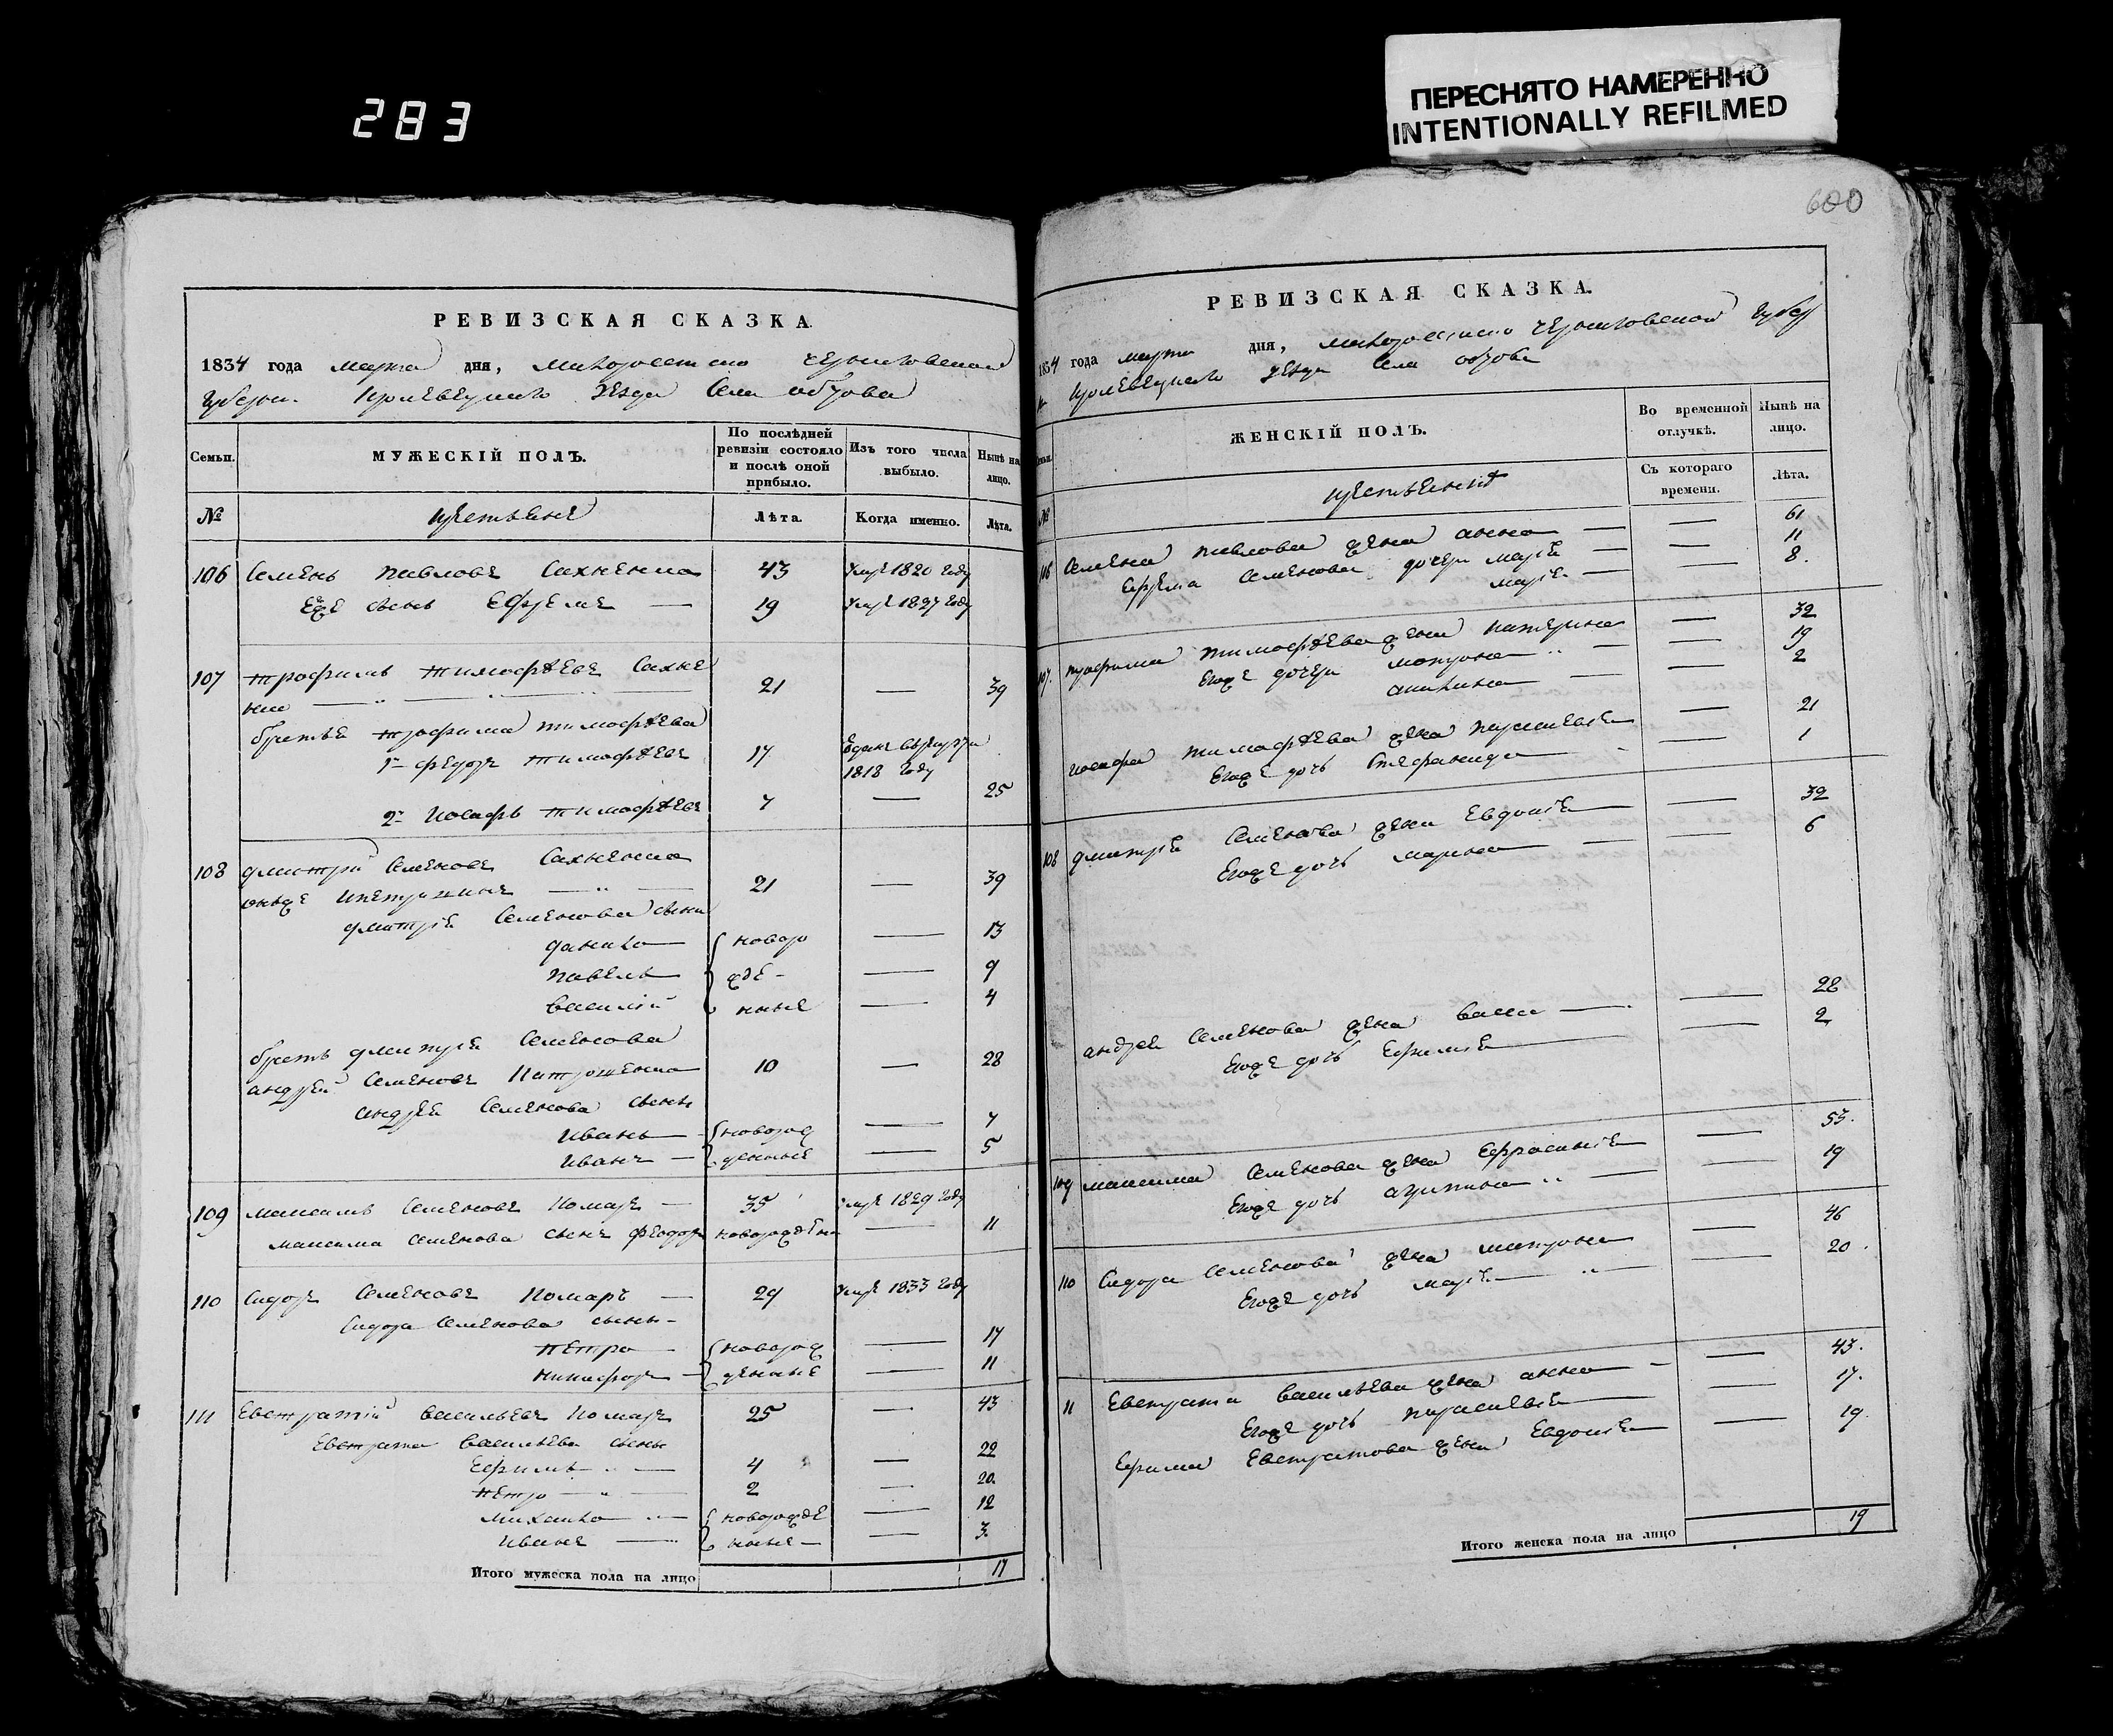 283
ПЕРЕСНЯТО НАМЕРЕННО
INTENTIONALLY REFILMED
600
РЕВИЗСКАЯ СКАЗКА.
1834 года марта дня, малороссийско черниговской
губерни. Кролевецкого уезда села обтова
Семьи.
МУЖЕСКІЙ ПОЛЪ.
По послѣдней ревизіи состояло и послѣ оной прибыло.
Изъ того числа выбыло.
Нынѣ на лицо.
№
Лѣта.
Когда именно.
Лѣта.
106 Семенъ павловъ Сахненко 43 умре 1820 году
Его же сынъ Ефремъ — 19 умре 1837 году
107 трофимъ тимофѣевъ Сахне
нко — 21 — 39
братья трофима тимофѣева
1й федоръ тимофѣевъ 17 Взданъ врекруты
1818 году
2й Иосафъ тимофѣевъ 7 — 25
108 дмитрій Семеновъ Сахненко
онже — 21 — 39
дмитрія Семенова сыны
данило — новоро — 13
павелъ жде — 9
василій нные — 4
братъ дмитрія Семенова
андрей Семеновъ 10 — 28
андрея Семенова сыны
Иванъ — новорож — 7
Иванъ — денные — 5
109 максимъ Семеновъ Комаръ — 35 умре 1829 году
максима Семенова сынъ феодоръ новорожден — 11
110 Сидоръ Семеновъ Комаръ — 29 умре 1833 году
Сидора Семенова сыны —
петро — новорож — 17
никифоръ — денные — 11
111 Евстратій васильевъ Комаръ 25 — 43
Евстрата васильева сыны
Ефимъ — 4 — 22
петро — 2 — 20.
михайло — новорожде — 12
Иванъ — нные — 3.
Итого мужеска пола на лицо 17
РЕВИЗСКАЯ СКАЗКА.
1834 года марта дня, малороссийско черниговской губер
Кролевецкого уезда села обтова
Семьи.
ЖЕНСКІЙ ПОЛЪ.
Во временной отлучкѣ.
Нынѣ на лицо.
№
Съ котораго времени.
Лѣта.
106 Семена павлова жена анна — — 61
Ефрема Семенова дочери марія — — 11
марія — — 8.
107. трофима тимофѣева жена катерина — 32
Егоже дочери мотрона — — 19
акилина — — 2
иосафа тимофѣева жена параскевія — 21
Егоже дочь Стефанида — 1
108 дмитрія Семенова жена Евдокія — — 32
Егоже дочь марина — — 6
андрея Семенова жена васса — — 28
Егоже дочь Ефимія — — 2
109 максима Семенова жена Ефросинія — 53.
Егоже дочь агрипина — — 19
110 Сидора Семенова жена матрона — 46
Егоже дочь марія — — 20.
11 Евстрата васильева жена анна — — 43.
Егоже дочь параскевія — — 17.
Ефима Евстратова жена Евдокія — 19.
Итого женска пола на лицо 19